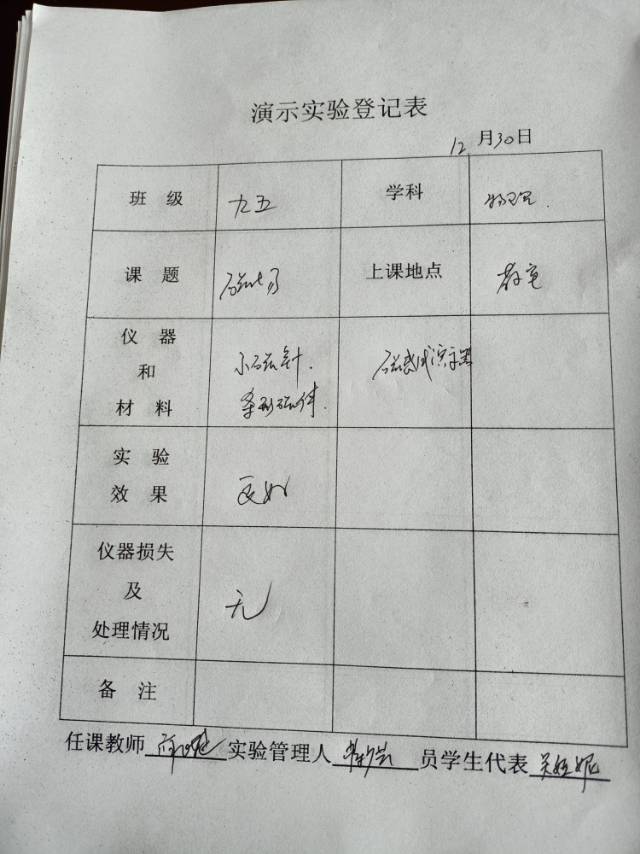 演示实验登记表
12 月30日
班 级 九五 学科 物理
课 题 磁场 上课地点 教室
仪 器
和
材 料
小磁针. 磁感线演示器
条形磁体.
实 验
效 果
良好
仪器损失
及
处理情况
无
备 注
任课教师 实验管理人 员学生代表